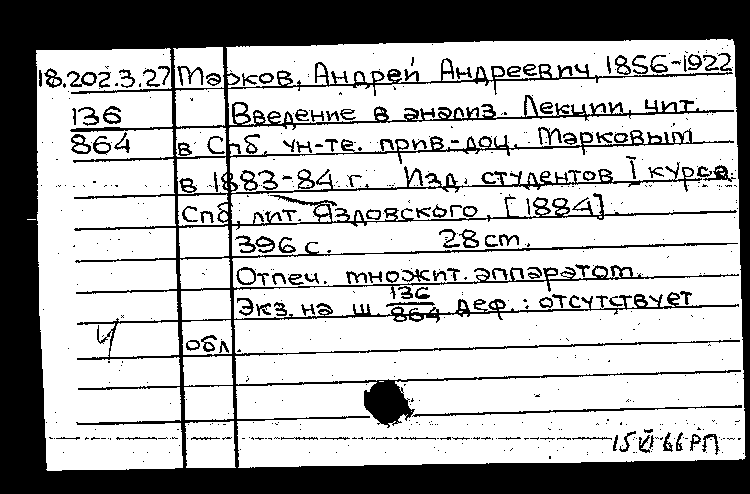 18.202.3.27 Марков, Андрей Андреевич, 1856-1922
136 Введение в анализ. Лекции, чит.
864 в Спб. ун-те. прив.-доц. Марковым
в 1883-84 г. Изд. студентов I курса.
Спб, лит. Яздовского, [1884].
396 с. 28 cm.
Отпеч. множит. аппаратом.
Экз. на ш. 136/864 деф.: отсутствует
Ч обл.
15 VI 66 РП